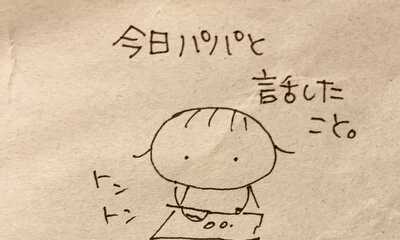 今日パパと
話した
こと。
トン
トン